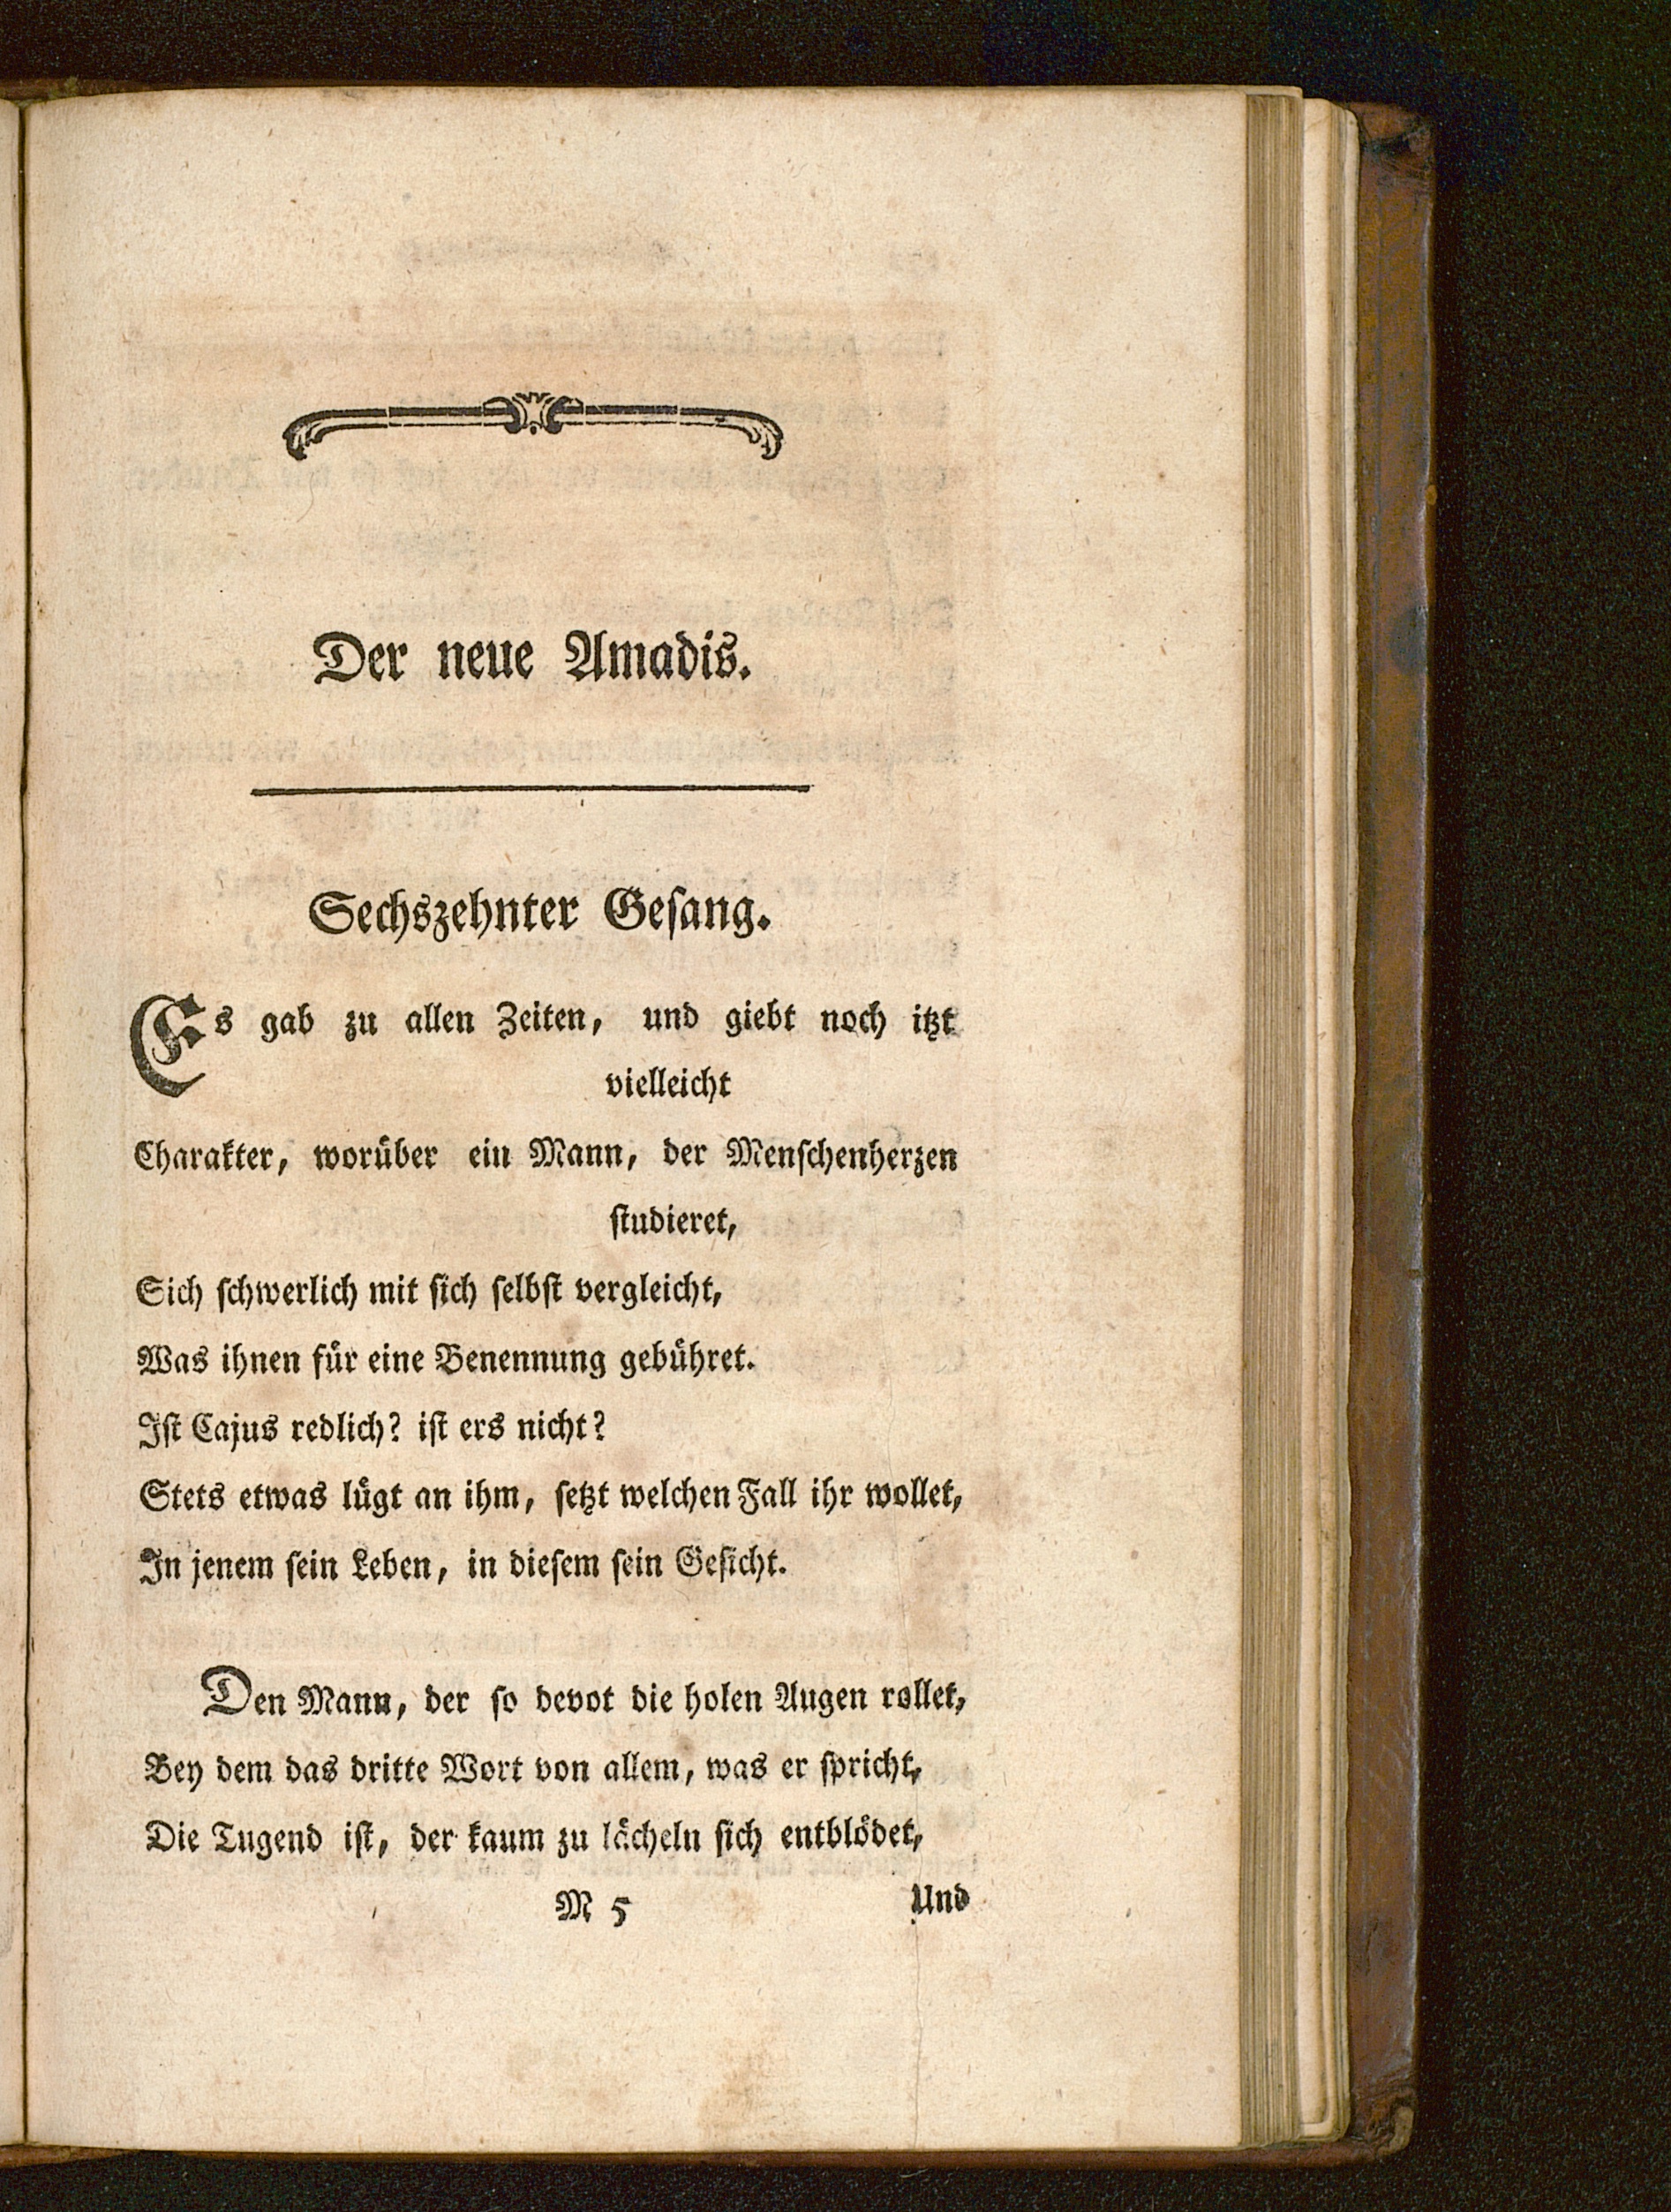 Der neue Amadis.
Sechszehnter Geſang.
Es gab zu allen Zeiten, und giebt noch itzt
vielleicht
Charakter, worüber ein Mann, der Menſchenherzen
ſtudieret,
Sich ſchwerlich mit ſich ſelbſt vergleicht,
Was ihnen für eine Benennung gebühret.
Iſt Cajus redlich? iſt ers nicht?
Stets etwas lügt an ihm, ſetzt welchen Fall ihr wollet,
In jenem ſein Leben, in dieſem ſein Geſicht.
Den Mann, der ſo devot die holen Augen rollet,
Bey dem das dritte Wort von allem, was er ſpricht,
Die Tugend iſt, der kaum zu lächeln ſich entblödet,
M 5
Und